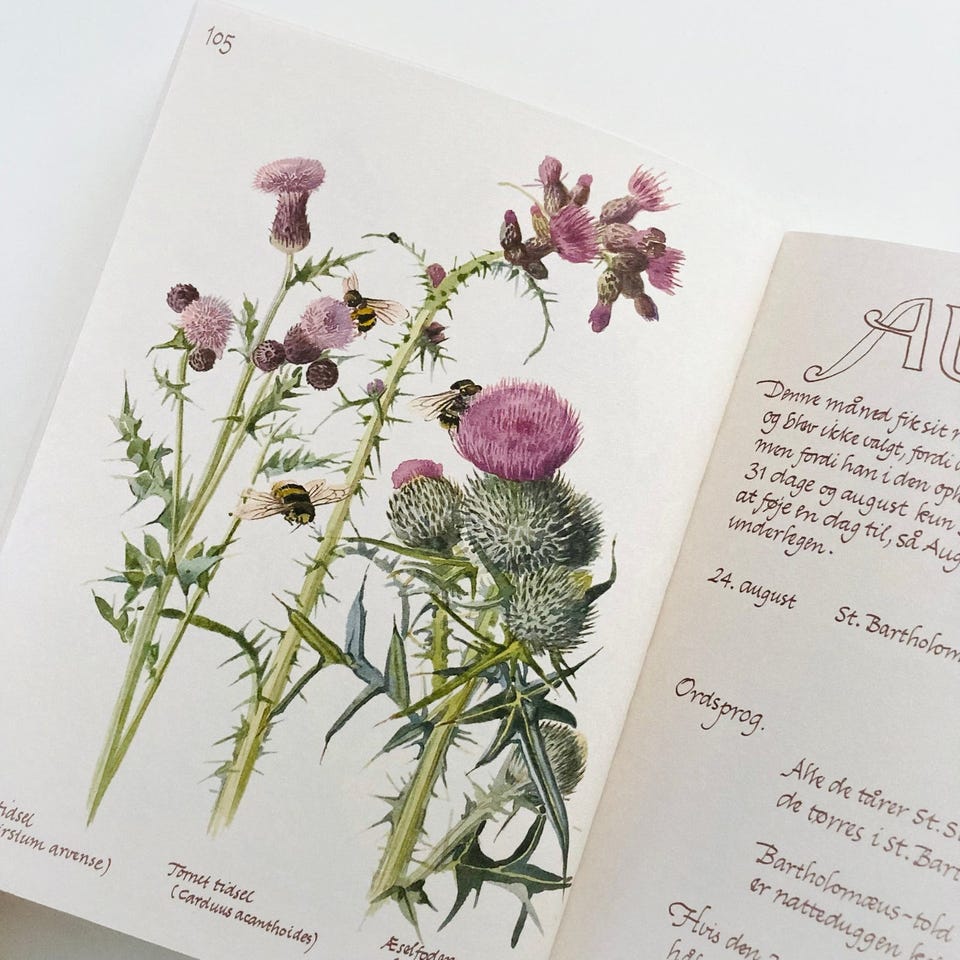 105
tidsel
arvense)
Tornet tidsel
(Carduus acanthoides)
Æselfod
AU
Denne måned fik sit
og blev ikke valgt, fordi
men fordi han i den
31 dage og august kun
at føje en dag til, så Aug
underlegen.
24. august St. Bartholom
Ordsprog.
Alle de tårer St.
de tørres i St. Bart
Bartholomæus-told
er natteduggen
Hvis den